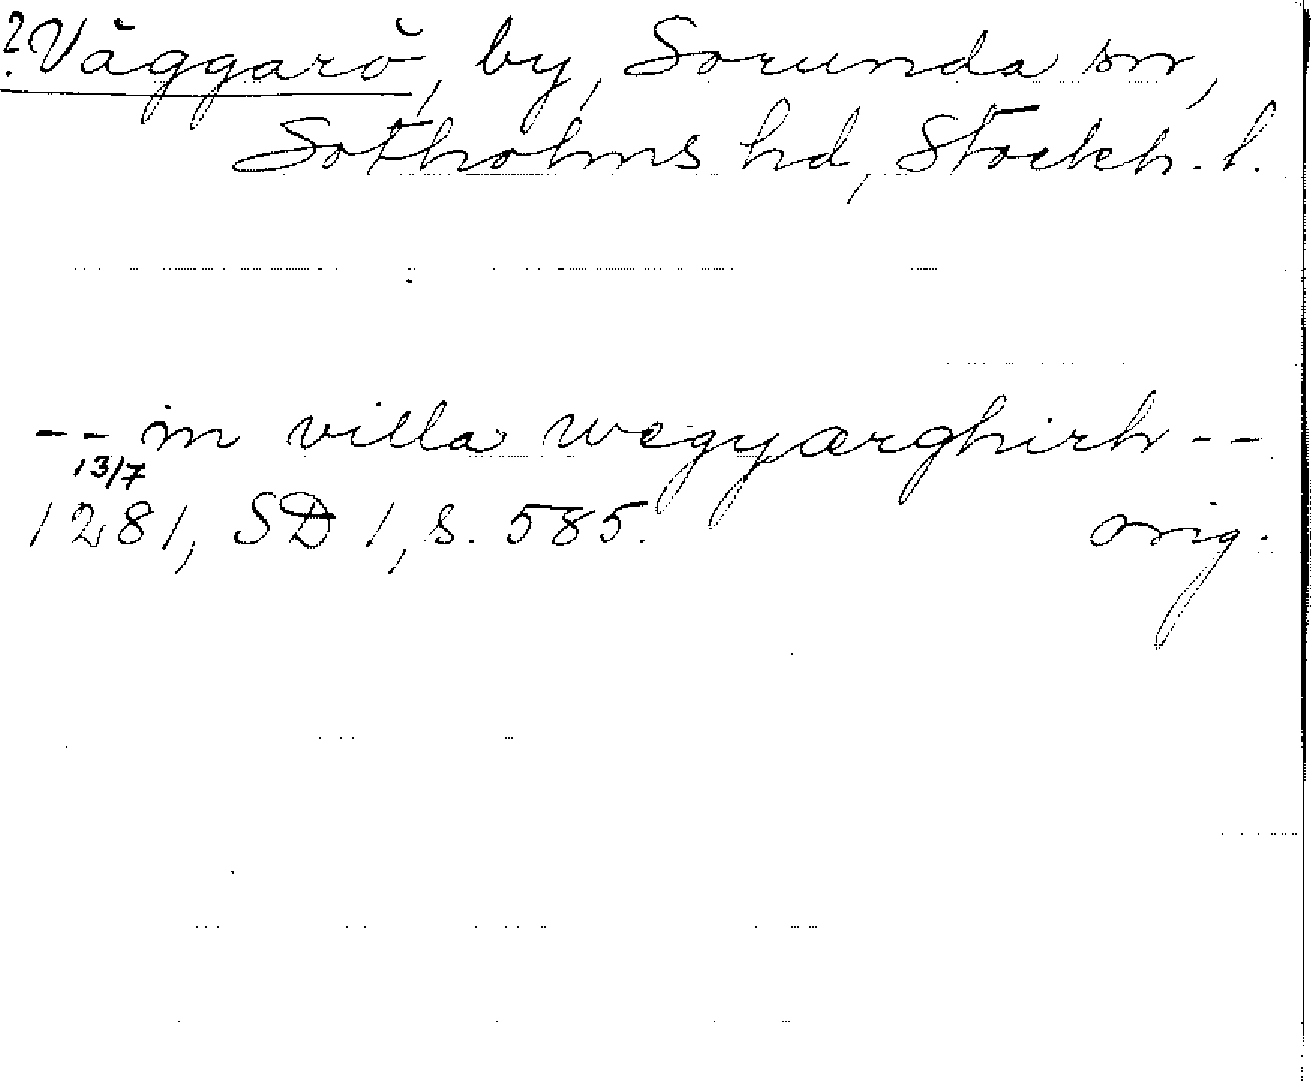 ?Väggarö, by, Sorunda sn,
Sotholms hd, Stockh. l.
-- in villa wegyærghirh --
13/7
1281, SD 1, s. 585. orig.